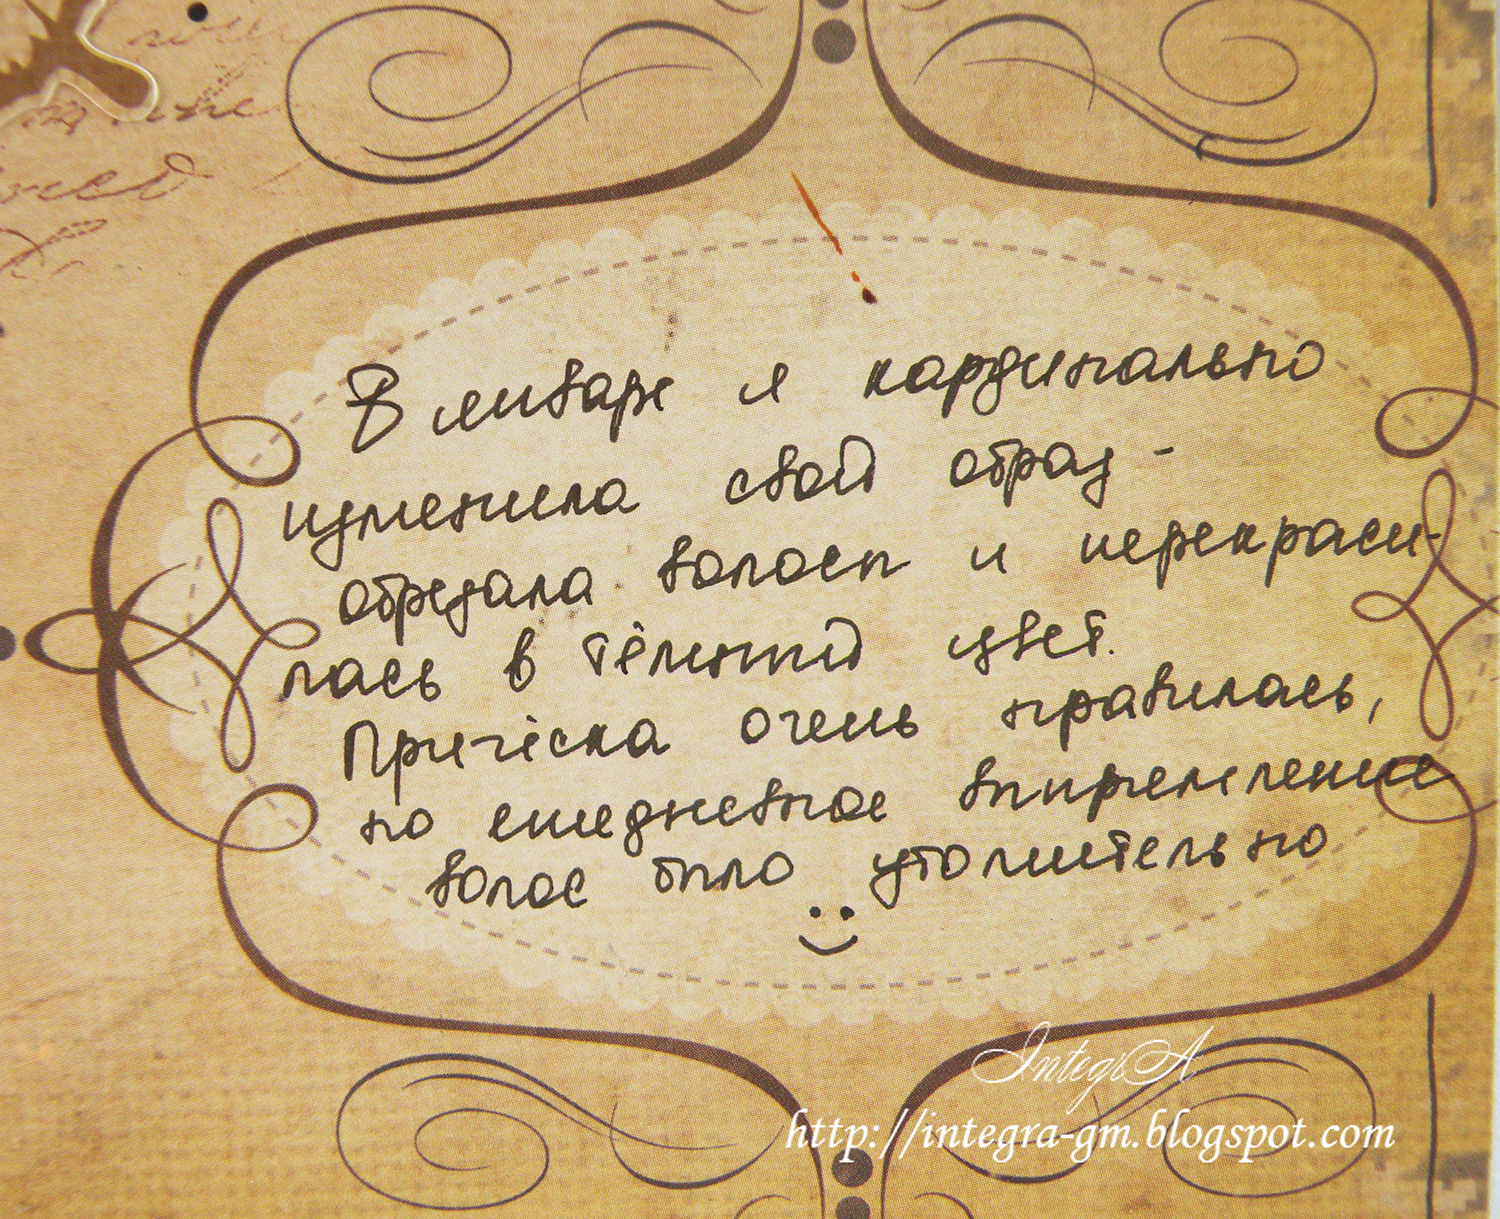 В январе я кардинально
изменила свой образ -
обрезала волосы и перекраси-
лась в тёмный цвет.
Причёска очень нравилась,
но ежедневное выпремление
волос было утомительно
IntegrA
http://integra-gm.blogspot.com